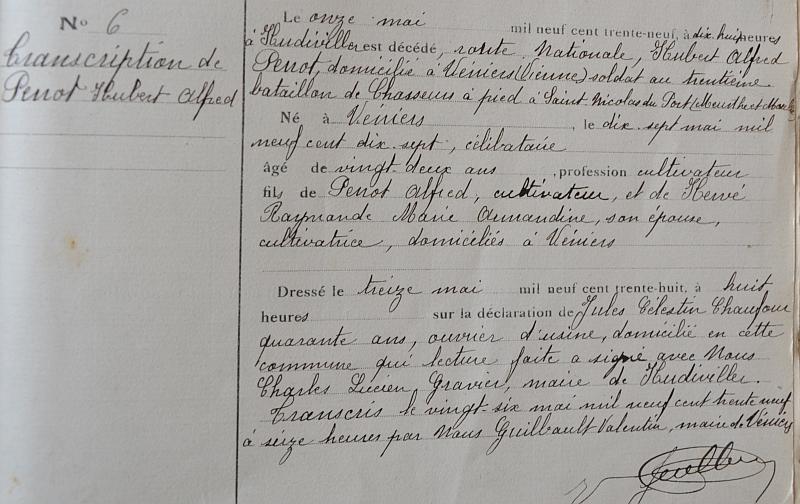 N° 6
Transcription de
Penot Hubert Alfred
Le onze mai mil neuf cent trente-neuf, à dix huit heures
à Hudiviller est décédé, route Nationale, Hubert Alfred
Penot, domicilié à Véniers (Vienne) soldat au trentième
bataillon de Chasseurs à pied à Saint Nicolas du Port (Meurthe et Moselle)
Né à Véniers, le dix. sept mai mil
neuf cent dix. sept, célibataire
âgé de vingt-deux ans, profession cultivateur
fils de Penot Alfred, cultivateur, et de Hervé
Raymande Marie Armandine, son épouse,
cultivatrice, domiciliés à Véniers
Dressé le treize mai mil neuf cent trente-huit, à huit
heures sur la déclaration de Jules Célestin Chaufour
quarante ans, ouvrier d'usine, domicilié en cette
commune qui lecture faite a signé avec Nous
Charles Lucien Gravier, maire de Hudiviller.
Transcris le vingt-six mai mil neuf cent trente neuf
à seize heures par Nous Guilbault Valentin, maire de Véniers